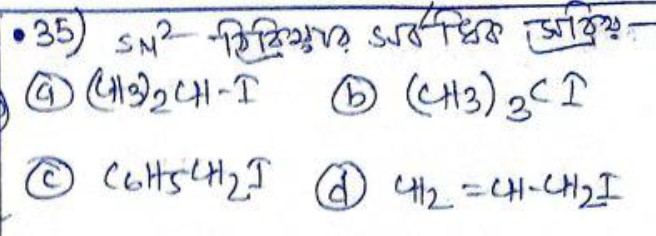 •35) SN² বিক্রিয়ায় সর্বাধিক সক্রিয় —
ⓐ (CH3)2CH-I ⓑ (CH3)3CI
ⓒ C6H5CH2I ⓓ CH2=CH-CH2I